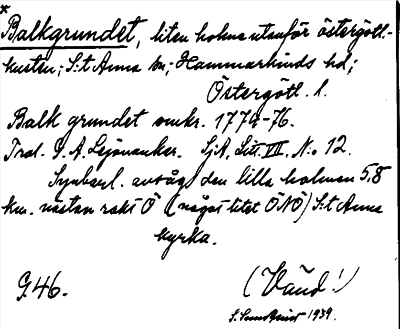 *
Balkgrundet, liten holme utanför östergötl.-
kusten; S:t Anna sn; Hammarkinds hd;
Östergötl. l.
Balk grundet omkr. 1774-76.
Trol. P. A. Lejonanker. SjA, Litt. VII, N:o 12.
Synbarl. avsågs den lilla holmen 5,8
km. nästan rakt Ö (något litet ÖNÖ) S:t Anna
kyrka.
G.46. (Vänd!)
S. Sundqvist 1939.